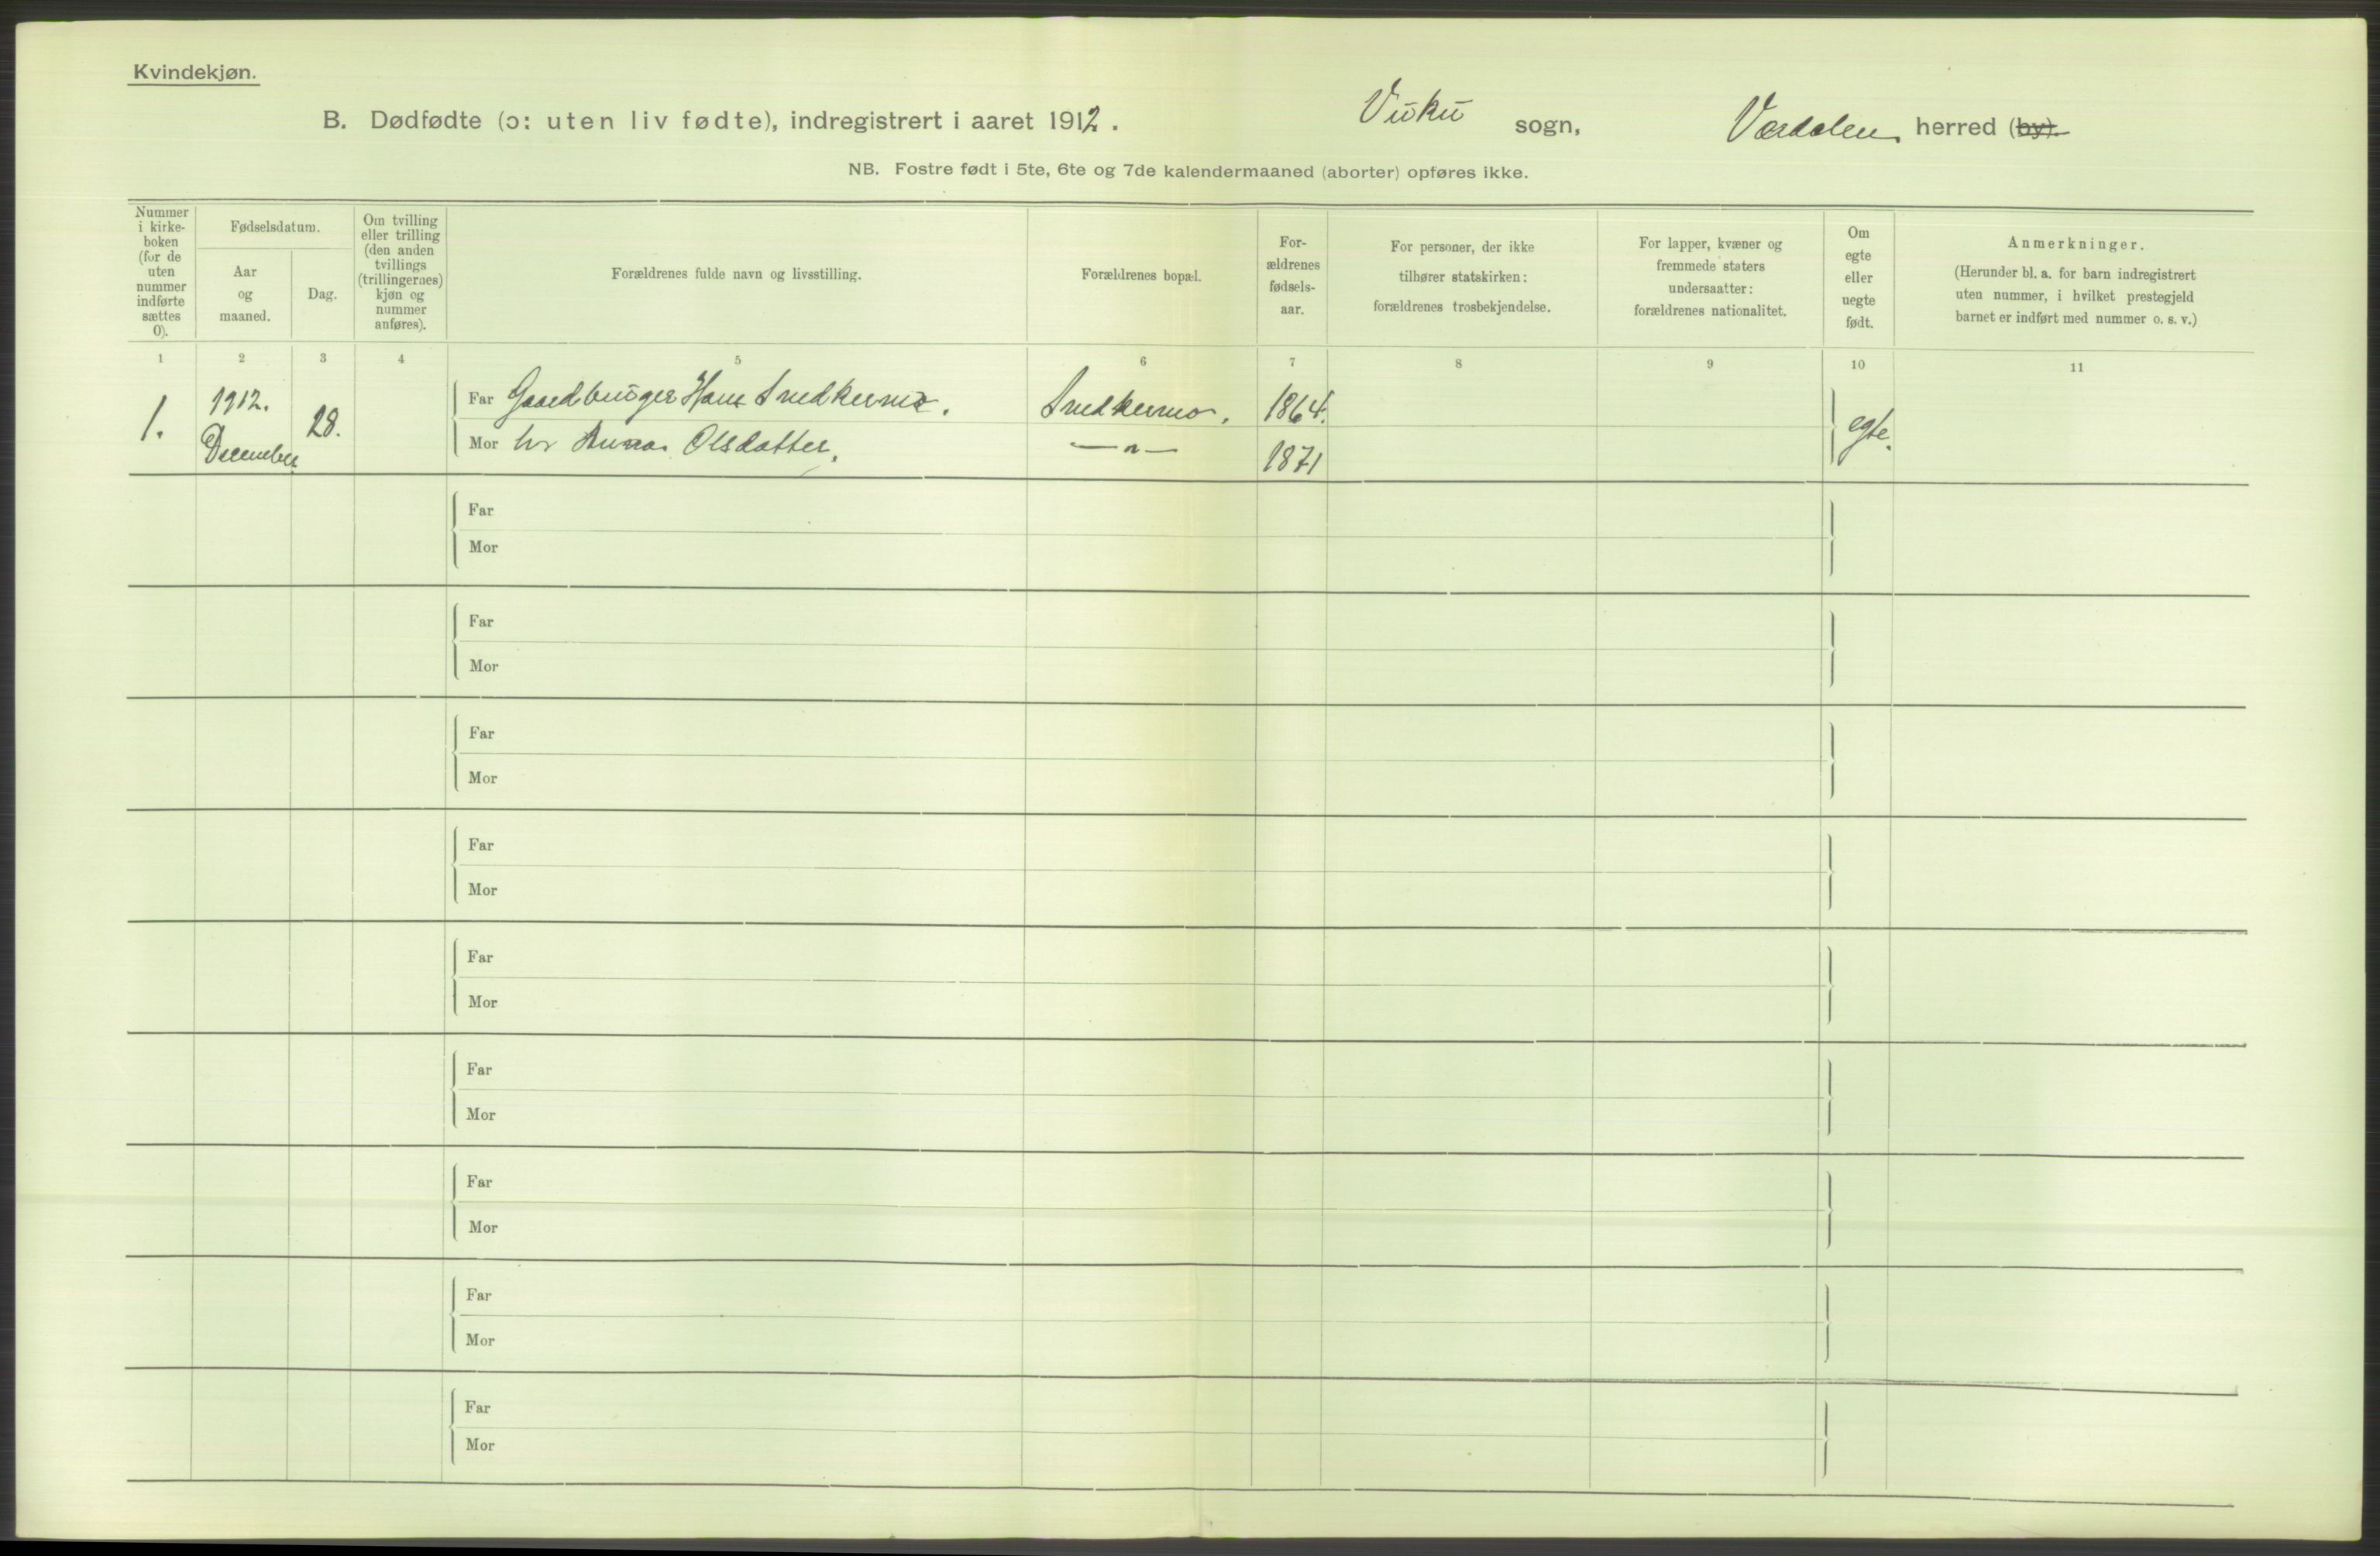 Kvindekjøn.
B. Dødfødte (ɔ: uten liv fødte), indregistrert i aaret 1912. Vuku sogn, Værdalen herred (by).
NB. Fostre født i 5te, 6te og 7de kalendermaaned (aborter) opføres ikke.
Nummer
i kirke-
boken
(for de
uten
nummer
indførte
sættes
0).
Fødselsdatum.
Aar
og
maaned.
Dag.
Om tvilling
eller trilling
(den anden
tvillings
(trillingernes)
kjøn og
nummer
anføres).
Forældrenes fulde navn og livsstilling.
Forældrenes bopæl.
For-
ældrenes
fødsels-
aar.
For personer, der ikke
tilhører statskirken:
forældrenes trosbekjendelse.
For lapper, kvæner og
fremmede staters
undersaatter:
forældrenes nationalitet.
Om
egte
eller
uegte
født.
Anmerkninger.
(Herunder bl. a. for barn indregistrert
uten nummer, i hvilket prestegjeld
barnet er indført med nummer o. s. v.)
1 2 3 4 5 6 7 8 9 10 11
1.
1912.
December
28.
Far Gaardbruger Hans Snekkermo. Snekkermo. 1864.
Mor Anna Olsdatter. —„— 1871
egte.
Far
Mor
Far
Mor
Far
Mor
Far
Mor
Far
Mor
Far
Mor
Far
Mor
Far
Mor
Far
Mor